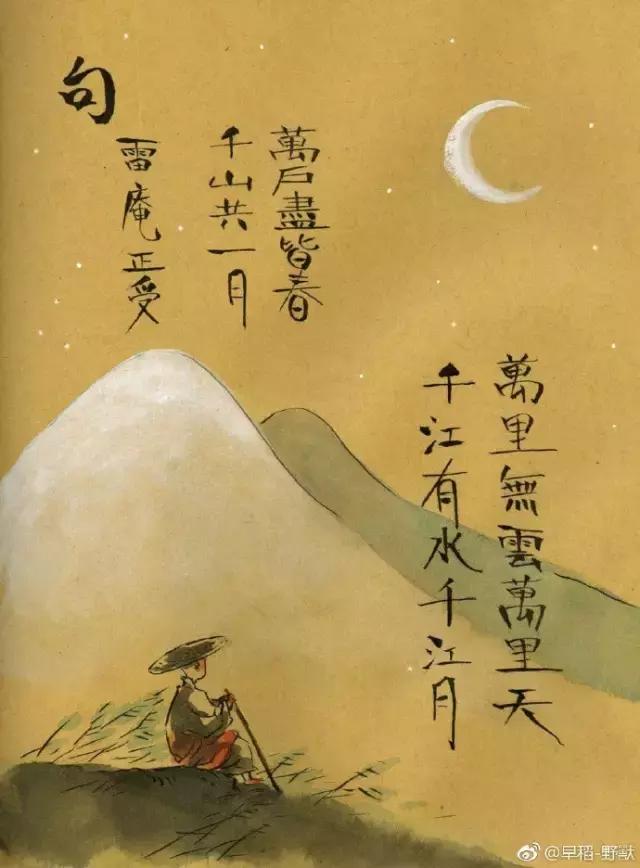 句
雷庵正受
千山共一月
萬戶盡皆春
千江有水千江月
萬里無雲萬里天
@早稻-野獸